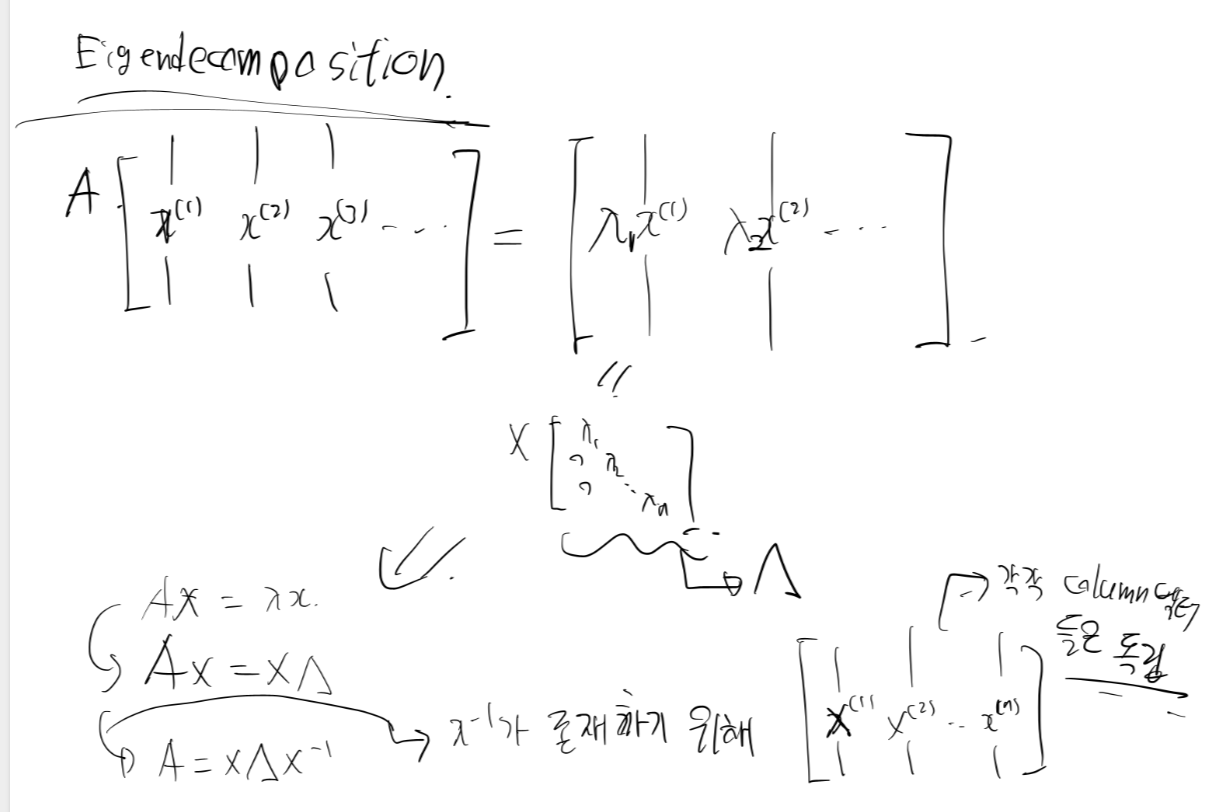 Eigendecomposition.
A [ x⁽¹⁾ x⁽²⁾ x⁽³⁾ ---- ] = [ λ₁x⁽¹⁾ λ₂x⁽²⁾ ---- ]
"
X [ λ₁
0 λ₂
0 ... λn ]
→ Λ
Ax = λx.
AX = XΛ
A = XΛX⁻¹
→ x⁻¹가 존재하기 위해
[ x⁽¹⁾ x⁽²⁾ -- x⁽ⁿ⁾ ]
→ 각각 column
들은 독립